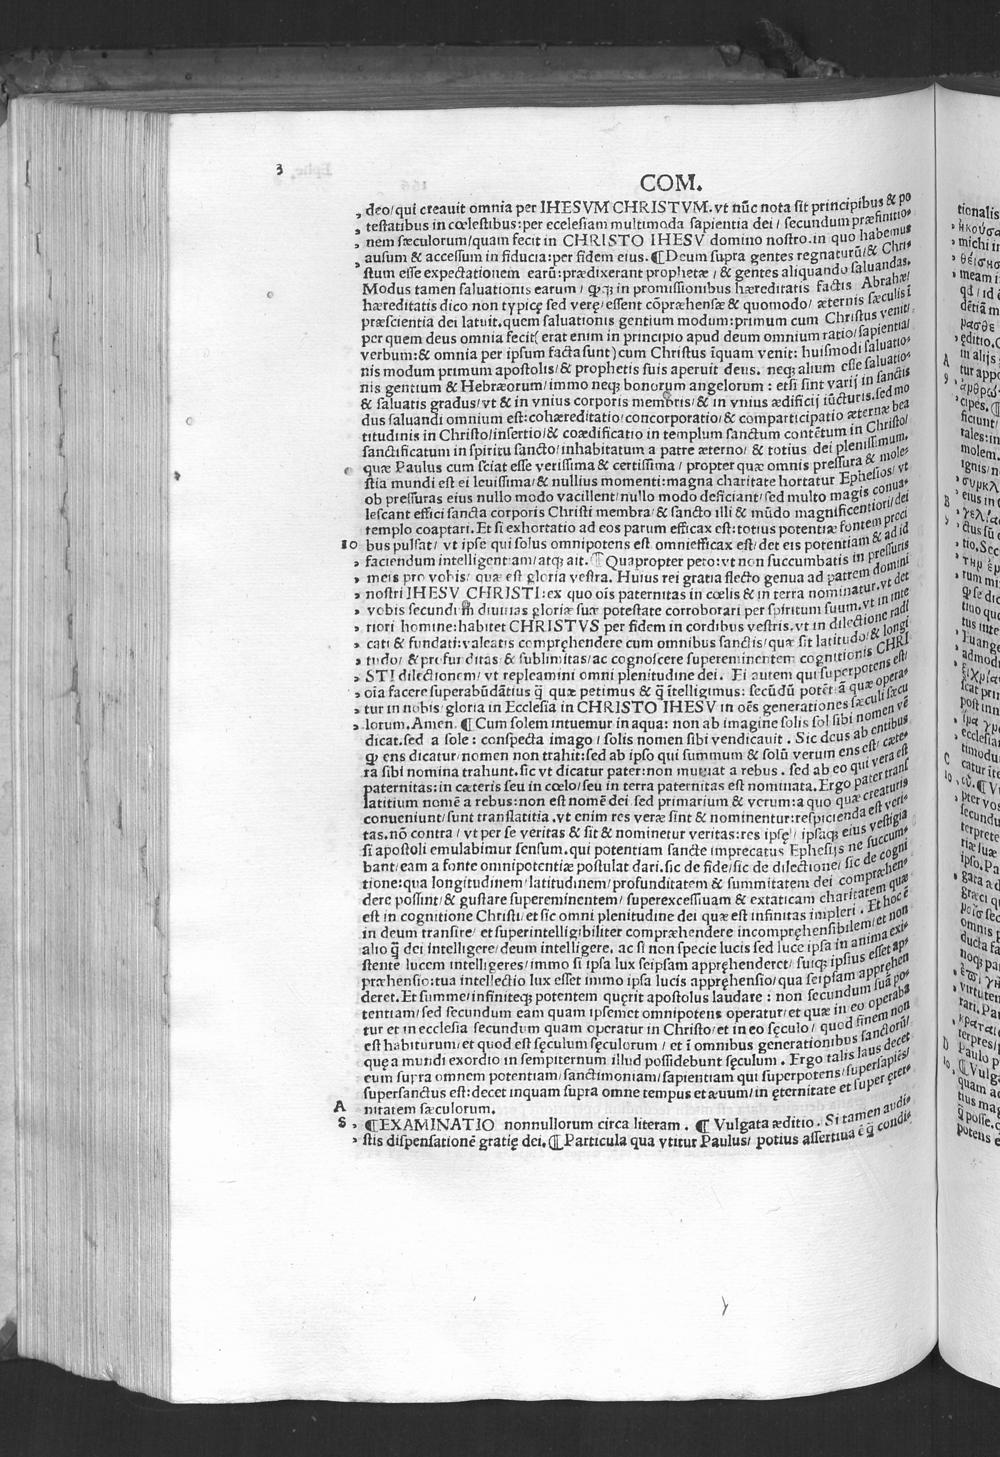 3
COM.
„ deo/ qui creauit omnia per IHESVM CHRISTVM. vt nūc nota sit principibus & po
„ testatibus in cœlestibus: per ecclesiam multimoda sapientia dei / secundum præfinitio-
„ nem sæculorum/ quam fecit in CHRISTO IHESV domino nostro. in quo habemus
„ ausum & accessum in fiducia: per fidem eius. ¶ Deum supra gentes regnaturū/ & Chri-
stum esse expectationem earū: prædixerant prophetæ / & gentes aliquando saluandas.
Modus tamen saluationis earum / ꝙꝗ in promissionibus hæreditatis factis Abrahæ/
hæreditatis dico non typicę sed verę/ essent cōpræhensæ & quomodo/ æternis sæculis ī
præscientia dei latuit. quem saluationis gentium modum: primum cum Christus venit/
per quem deus omnia fecit( erat enim in principio apud deum omnium ratio/ sapientia/
verbum: & omnia per ipsum facta sunt) cum Christus īquam venit: huiusmodi saluatio-
nis modum primum apostolis/ & prophetis suis aperuit deus. neqꝫ alium esse saluatio-
nis gentium & Hebræorum/ immo neqꝫ bonorum angelorum : etsi sint varij in sanctis
& saluatis gradus/ vt & in vnius corporis membris/ & in vnius ædificij iūcturis. sed mo
dus saluandi omnium est: cohæreditatio/ concorporatio/ & comparticipatio æternæ bea
titudinis in Christo/ insertio/ & coædificatio in templum sanctum contētum in Christo/
sanctificatum in spiritu sancto/ inhabitatum a patre æterno/ & totius dei plenissimum.
quæ Paulus cum sciat esse verissima & certissima / propter quæ omnis pressura & mole-
stia mundi est ei leuissima/ & nullius momenti: magna charitate hortatur Ephesios/ vt
ob pressuras eius nullo modo vacillent/ nullo modo deficiant/ sed multo magis conua-
lescant effici sancta corporis Christi membra/ & sancto illi & mūdo magnificentiori/ dei
templo coaptari. Et si exhortatio ad eos parum efficax est: totius potentiæ fontem preci
10 bus pulsat/ vt ipse qui solus omnipotens est omniefficax est/ det eis potentiam & ad id
„ faciendum intelligentiam/ atqꝫ ait. ¶ Quapropter peto: vt non succumbatis in pressuris
„ meis pro vobis/ quæ est gloria vestra. Huius rei gratia flecto genua ad patrem domini
„ nostri IHESV CHRISTI: ex quo oīs paternitas in cœlis & in terra nominatur. vt det
„ vobis secundū diuitias gloriæ suæ potestate corroborari per spiritum suum. vt in inte
„ riori homine: habitet CHRISTVS per fidem in cordibus vestris. vt in dilectione radi
„ cati & fundati: valeatis compręhendere cum omnibus sanctis/ quæ sit latitudo/ & longi
„ tudo/ & profunditas/ & sublimitas/ ac cognoscere supereminentem cognitionis CHRI
„ STI dilectionem/ vt repleamini omni plenitudine dei. Ei autem qui superpotens est/
„ oīa facere superabūdātius ꝗ̄ quæ petimus & ꝗ̄ ītelligimus: secūdū potētiā quæ opera-
„ tur in nobis/ gloria in Ecclesia in CHRISTO IHESV in oēs generationes sæculi sæcu
„ lorum. Amen. ¶ Cum solem intuemur in aqua: non ab imagine solis sol sibi nomen vē
dicat. sed a sole : conspecta imago / solis nomen sibi vendicauit . Sic deus ab entibus
ꝙ ens dicatur/ nomen non trahit: sed ab ipso qui summum & solū verum ens est/ cæte-
ra sibi nomina trahunt. sic vt dicatur pater: non mutuat a rebus . sed ab eo qui vera est
paternitas: in cæteris seu in cœlo/ seu in terra paternitas est nominata. Ergo pater transf
latitium nomē a rebus: non est nomē dei sed primarium & verum: a quo quæ creaturis
conueniunt/ sunt translatitia . vt enim res veræ sint & nominentur: respicienda est veri-
tas. nō contra / vt per se veritas & sit & nominetur veritas: res ipsę/ ipsaqꝫ eius vestigia
si apostoli emulabimur sensum. qui potentiam sancte imprecatus Ephesijs ne succum-
bant/ eam a fonte omnipotentiæ postulat dari. sic de fide/ sic de dilectione/ sic de cogni
tione: qua longitudinem/ latitudinem/ profunditatem & summitatem dei compræhen-
dere possint/ & gustare supereminentem/ superexcessiuam & extaticam charitatem quæ
est in cognitione Christi/ et sic omni plenitudine dei quæ est infinitas impleri . Et hoc ē
in deum transire/ et superintelligibiliter compræhendere incompręhensibilem/ et non
alio ꝗ̄ dei intelligere/ deum intelligere. ac si non specie lucis sed luce ipsa in anima exi-
stente lucem intelligeres/ immo si ipsa lux seipsam appręhenderet/ suiqꝫ ipsius esset ap-
præhensio: tua intellectio lux esset immo ipsa lucis appręhensio/ qua seipsam appręhen
deret. Et summe/ infiniteqꝫ potentem quęrit apostolus laudare : non secundum suā po-
tentiam/ sed secundum eam quam ipsemet omnipotens operatur/ et quæ in eo operaba
tur et in ecclesia secundum quam operatur in Christo/ et in eo sęculo/ quod finem non
est habiturum/ et quod est sęculum sęculorum / et ī omnibus generationibus sanctorū/
quę a mundi exordio in sempiternum illud possidebunt sęculum . Ergo talis laus decet
eum supra omnem potentiam/ sanctimoniam/ sapientiam qui superpotens/ supersapiēs/
supersanctus est: decet inquam supra omne tempus et æuum/ in ęternitate et super ęter-
A nitatem sæculorum.
8 „ ¶ EXAMINATIO nonnullorum circa literam . ¶ Vulgata æditio . Si tamen audi-
„ stis dispensationē gratię dei. ¶ Particula qua vtitur Paulus/ potius assertiua ē ꝗ̄ condi-